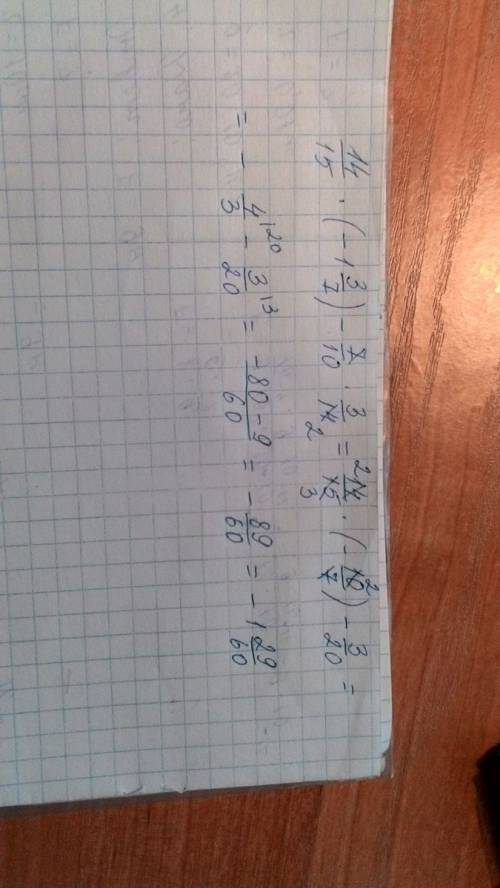 14/15 · (- 1 3/7) - 7/10 · 3/14 2 = 2 14/15 3 · (- 10 2/7) - 3/20 =
= - 4/3 |20 - 3/20 |3 = -80-9/60 = - 89/60 = - 1 29/60